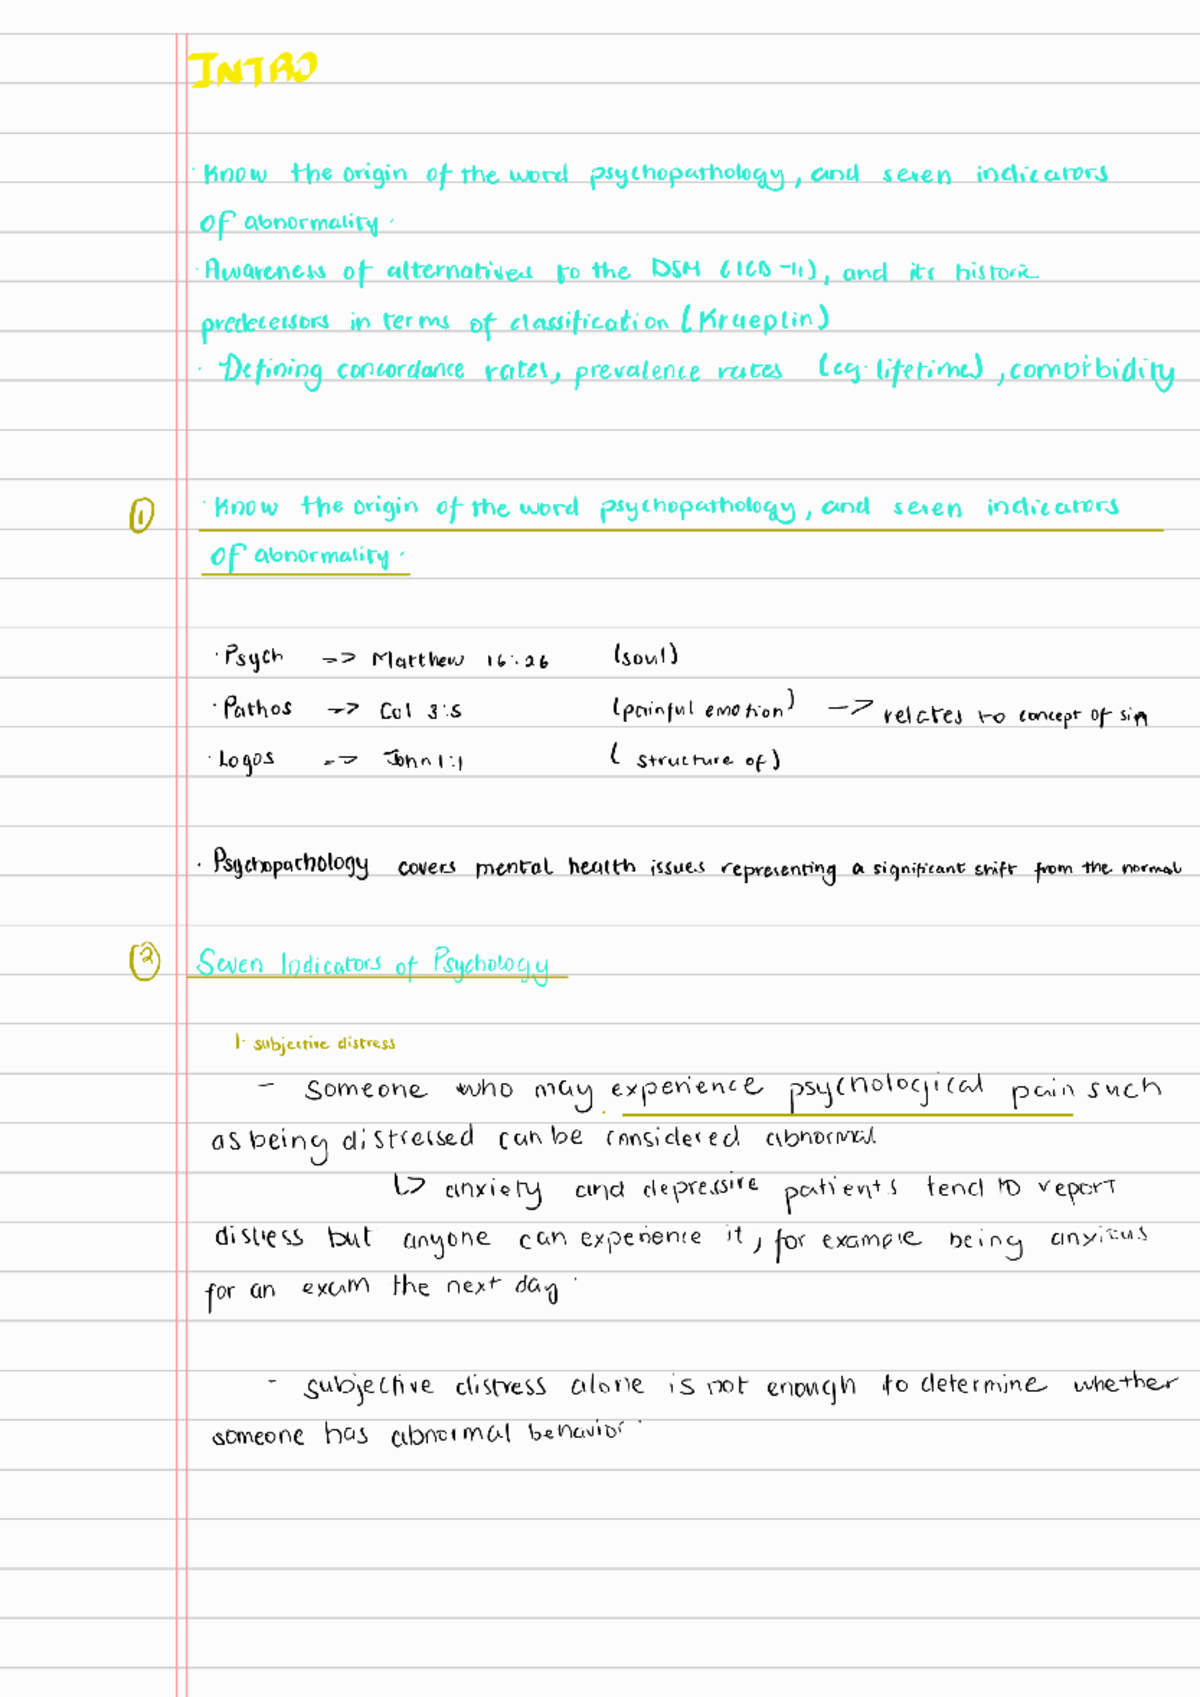 INTRO
· Know the origin of the word psychopathology, and seven indicators
of abnormality ·
· Awareness of alternatives to the DSM (ICD-11), and its historic
predecessors in terms of classification (Kraeplin)
· Defining concordance rates, prevalence rates (eg. lifetime), comorbidity
① · Know the origin of the word psychopathology, and seven indicators
of abnormality ·
· Psych -> Matthew 16:26 (soul)
· Pathos -> Col 3:5 (painful emotion) -> relates to concept of sin
· Logos -> John 1:1 ( structure of)
· Psychopathology covers mental health issues representing a significant shift from the normal
② Seven Indicators of Psychology
1. subjective distress
- Someone who may experience psychological pain such
as being distressed can be considered abnormal
↳ anxiety and depressive patients tend to report
distress but anyone can experience it, for example being anxious
for an exam the next day ·
- subjective distress alone is not enough to determine whether
someone has abnormal behavior ·